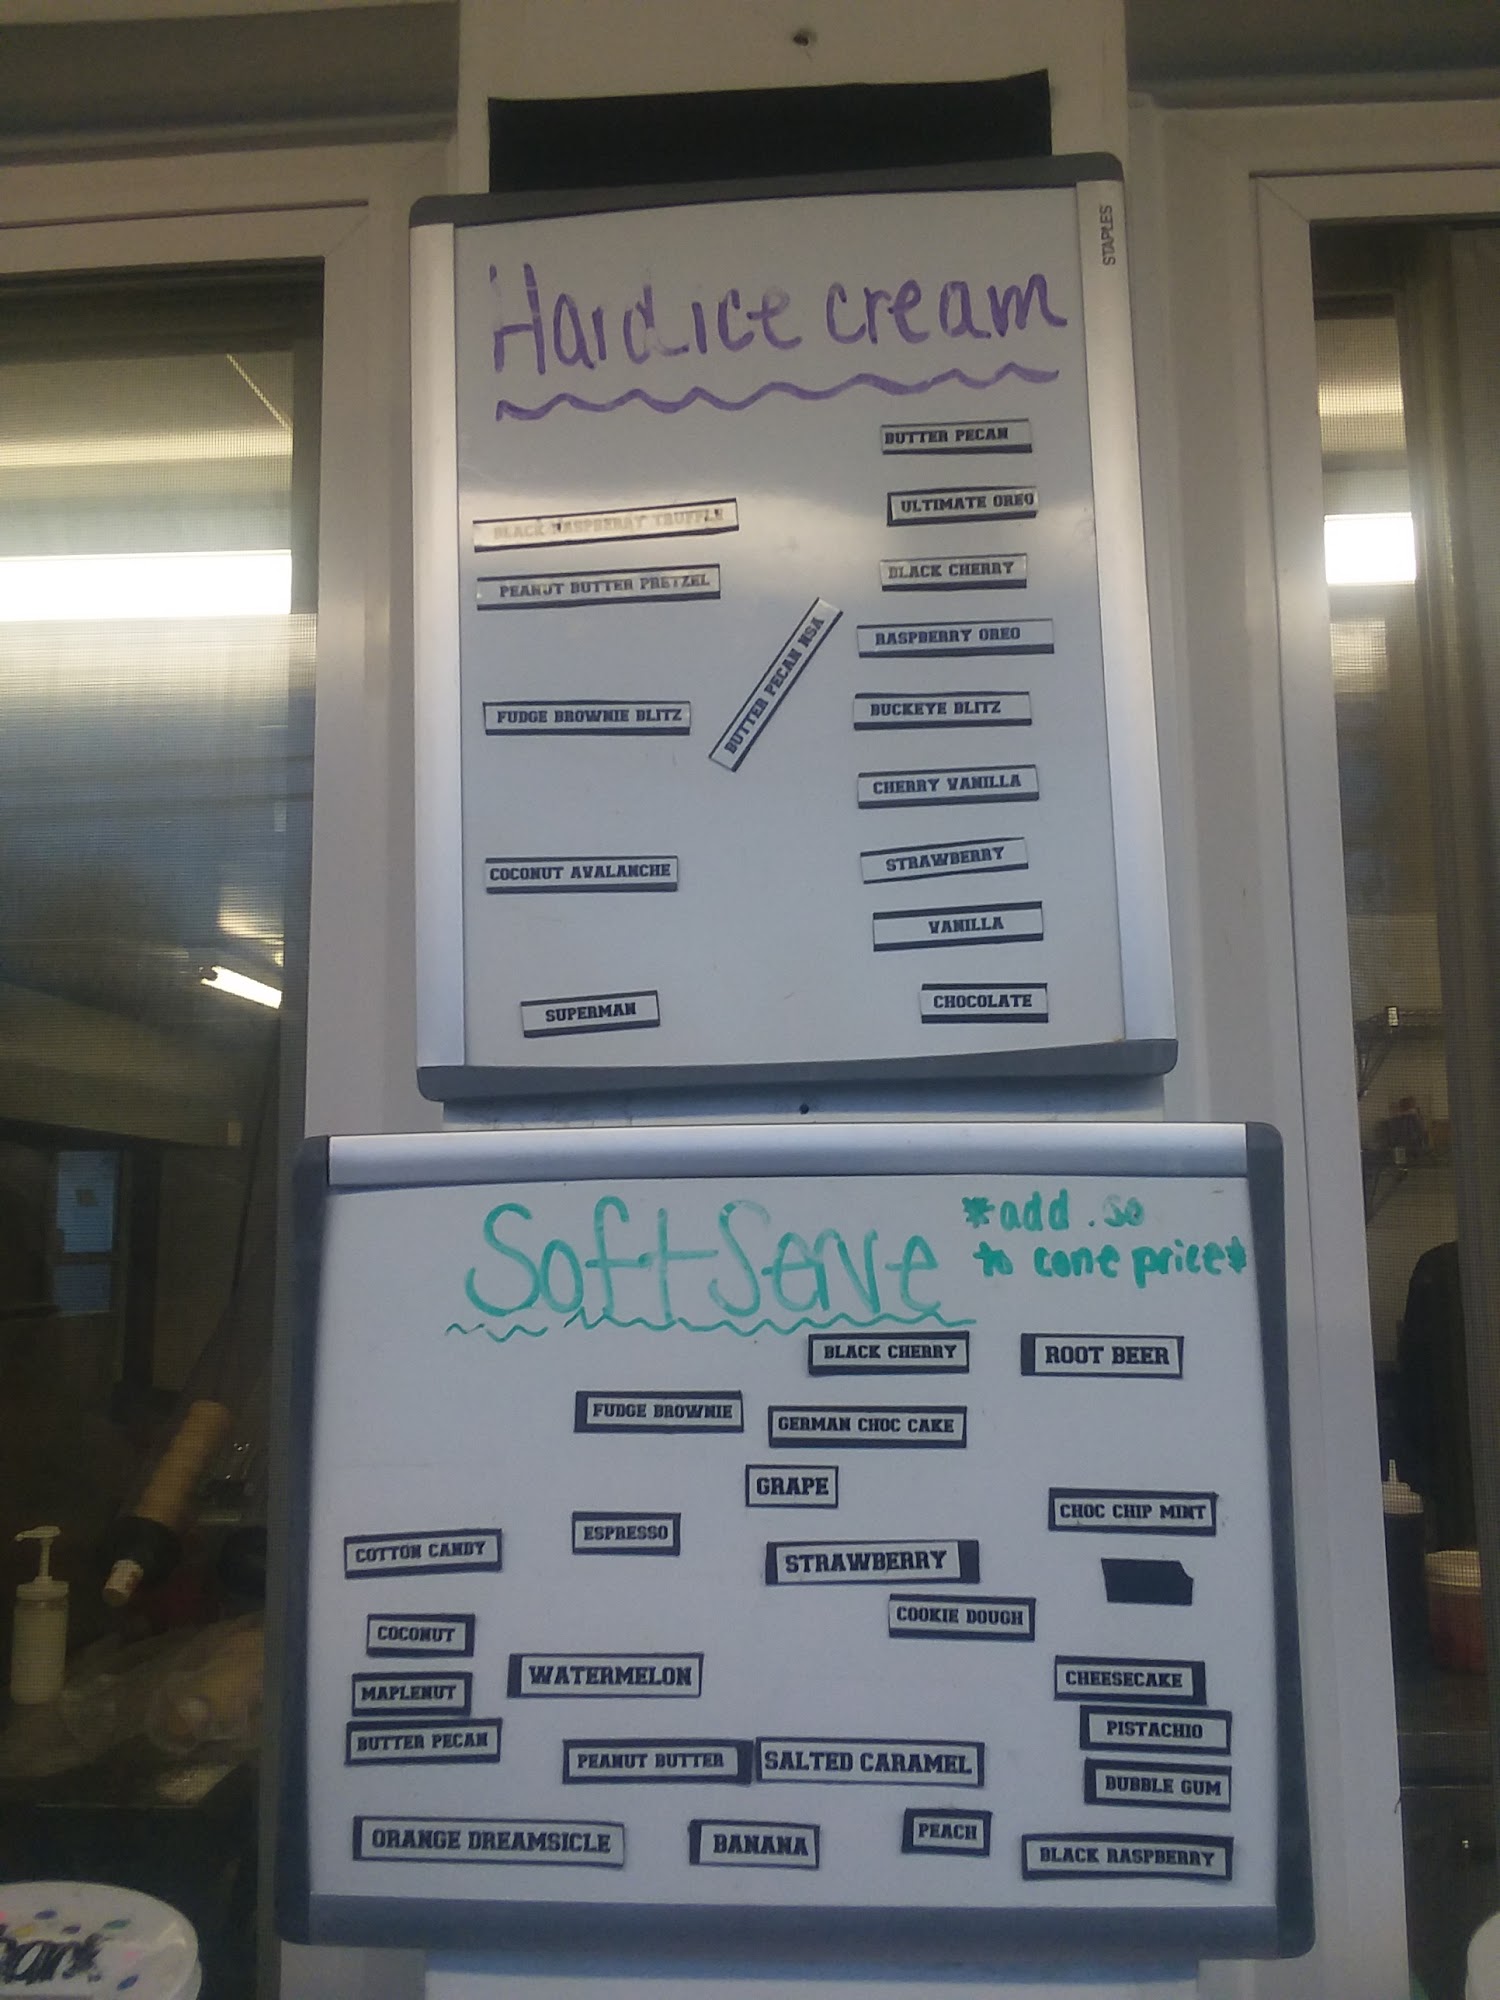 STAPLES
Hard ice cream
BUTTER PECAN
ULTIMATE OREO
BLACK RASPBERRY TRUFFLE
BLACK CHERRY
PEANUT BUTTER PRETZEL
RASPBERRY OREO
BUTTER PECAN NSA
FUDGE BROWNIE BLITZ
BUCKEYE BLITZ
CHERRY VANILLA
COCONUT AVALANCHE
STRAWBERRY
VANILLA
SUPERMAN
CHOCOLATE
Soft Serve
*add .50
to cone price*
BLACK CHERRY
ROOT BEER
FUDGE BROWNIE
GERMAN CHOC CAKE
GRAPE
CHOC CHIP MINT
COTTON CANDY
ESPRESSO
STRAWBERRY
COOKIE DOUGH
COCONUT
WATERMELON
CHEESECAKE
MAPLENUT
PISTACHIO
BUTTER PECAN
PEANUT BUTTER
SALTED CARAMEL
BUBBLE GUM
ORANGE DREAMSICLE
BANANA
PEACH
BLACK RASPBERRY